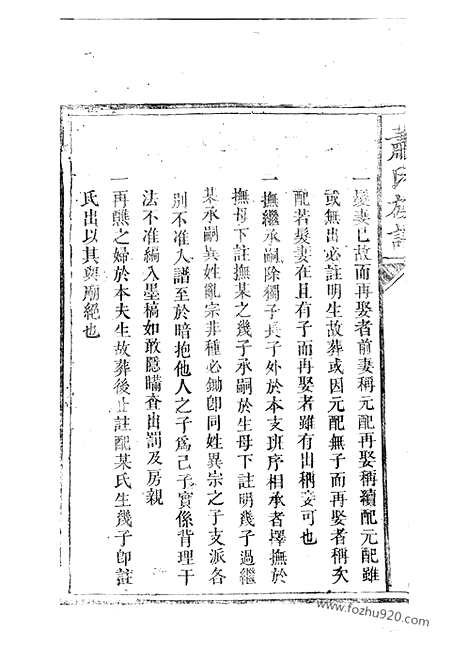 蕭氏族譜
一髮妻已故而再娶者前妻稱元配再娶稱續配元配雖
或無出必註明生故葬或因元配無子而再娶者稱次
配若髮妻在且有子而再娶者雖有出稱妾可也
一撫繼承嗣除獨子長子外於本支班序相承者擇撫於
撫母下註撫某之幾子承嗣於生母下註明幾子過繼
某承嗣異姓亂宗非種必鋤卽同姓異宗之子支派各
別不准入譜至於暗抱他人之子爲己子實係背理干
法不准編入墨稿如敢隱瞞查出罰及房親
一再醮之婦於本夫生故葬後止註配某氏生幾子卽註
氏出以其與廟絕也
www.fozhu920.com